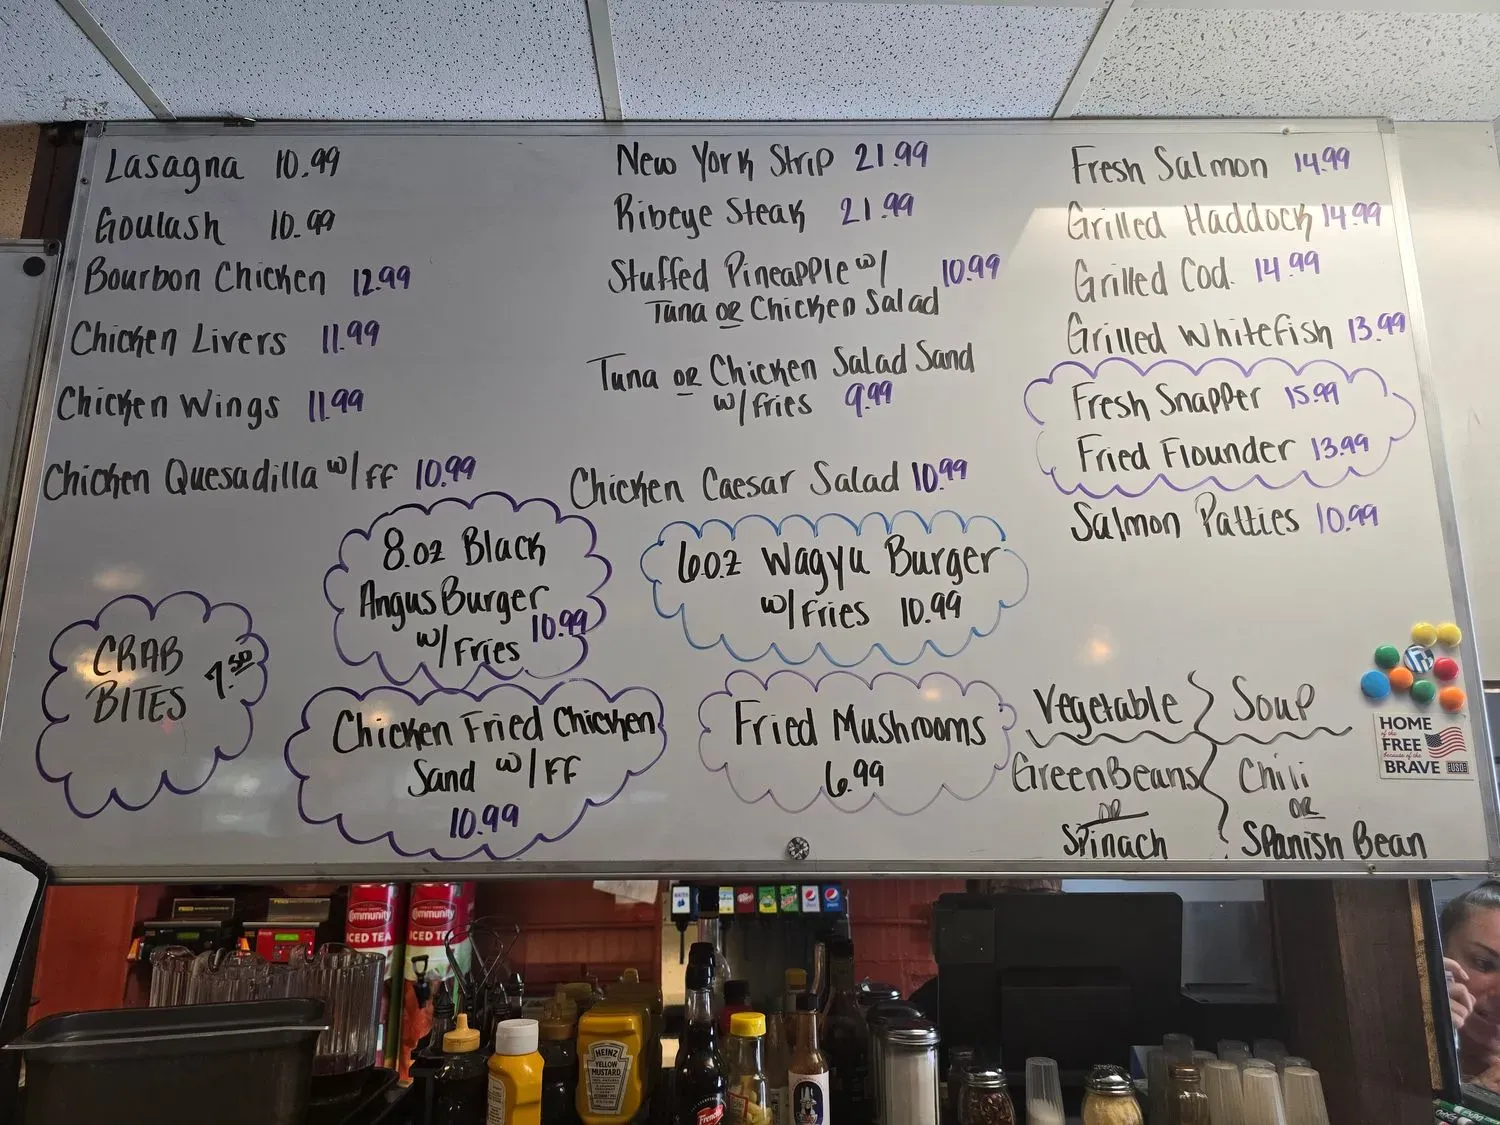 Lasagna 10.99
Goulash 10.99
Bourbon Chicken 12.99
Chicken Livers 11.99
Chicken Wings 11.99
Chicken Quesadilla w/FF 10.99
New York Strip 21.99
Ribeye Steak 21.99
Stuffed Pineapple w/ 10.99
Tuna or Chicken Salad
Tuna or Chicken Salad Sand
w/fries 9.99
Chicken Caesar Salad 10.99
Fresh Salmon 14.99
Grilled Haddock 14.99
Grilled Cod. 14.99
Grilled Whitefish 13.99
Fresh Snapper 15.99
Fried Flounder 13.99
Salmon Patties 10.99
CRAB
BITES 7.50
8.oz Black
Angus Burger
w/Fries 10.99
6oz Wagyu Burger
w/Fries 10.99
Chicken Fried Chicken
Sand w/FF
10.99
Fried Mushrooms
6.99
Vegetable
Green Beans
or
Spinach
Soup
Chili
or
Spanish Bean
HOME
of the
FREE
because of the
BRAVE
USO
Community
ICED TEA
Community
ICED TEA
HEINZ
YELLOW
MUSTARD